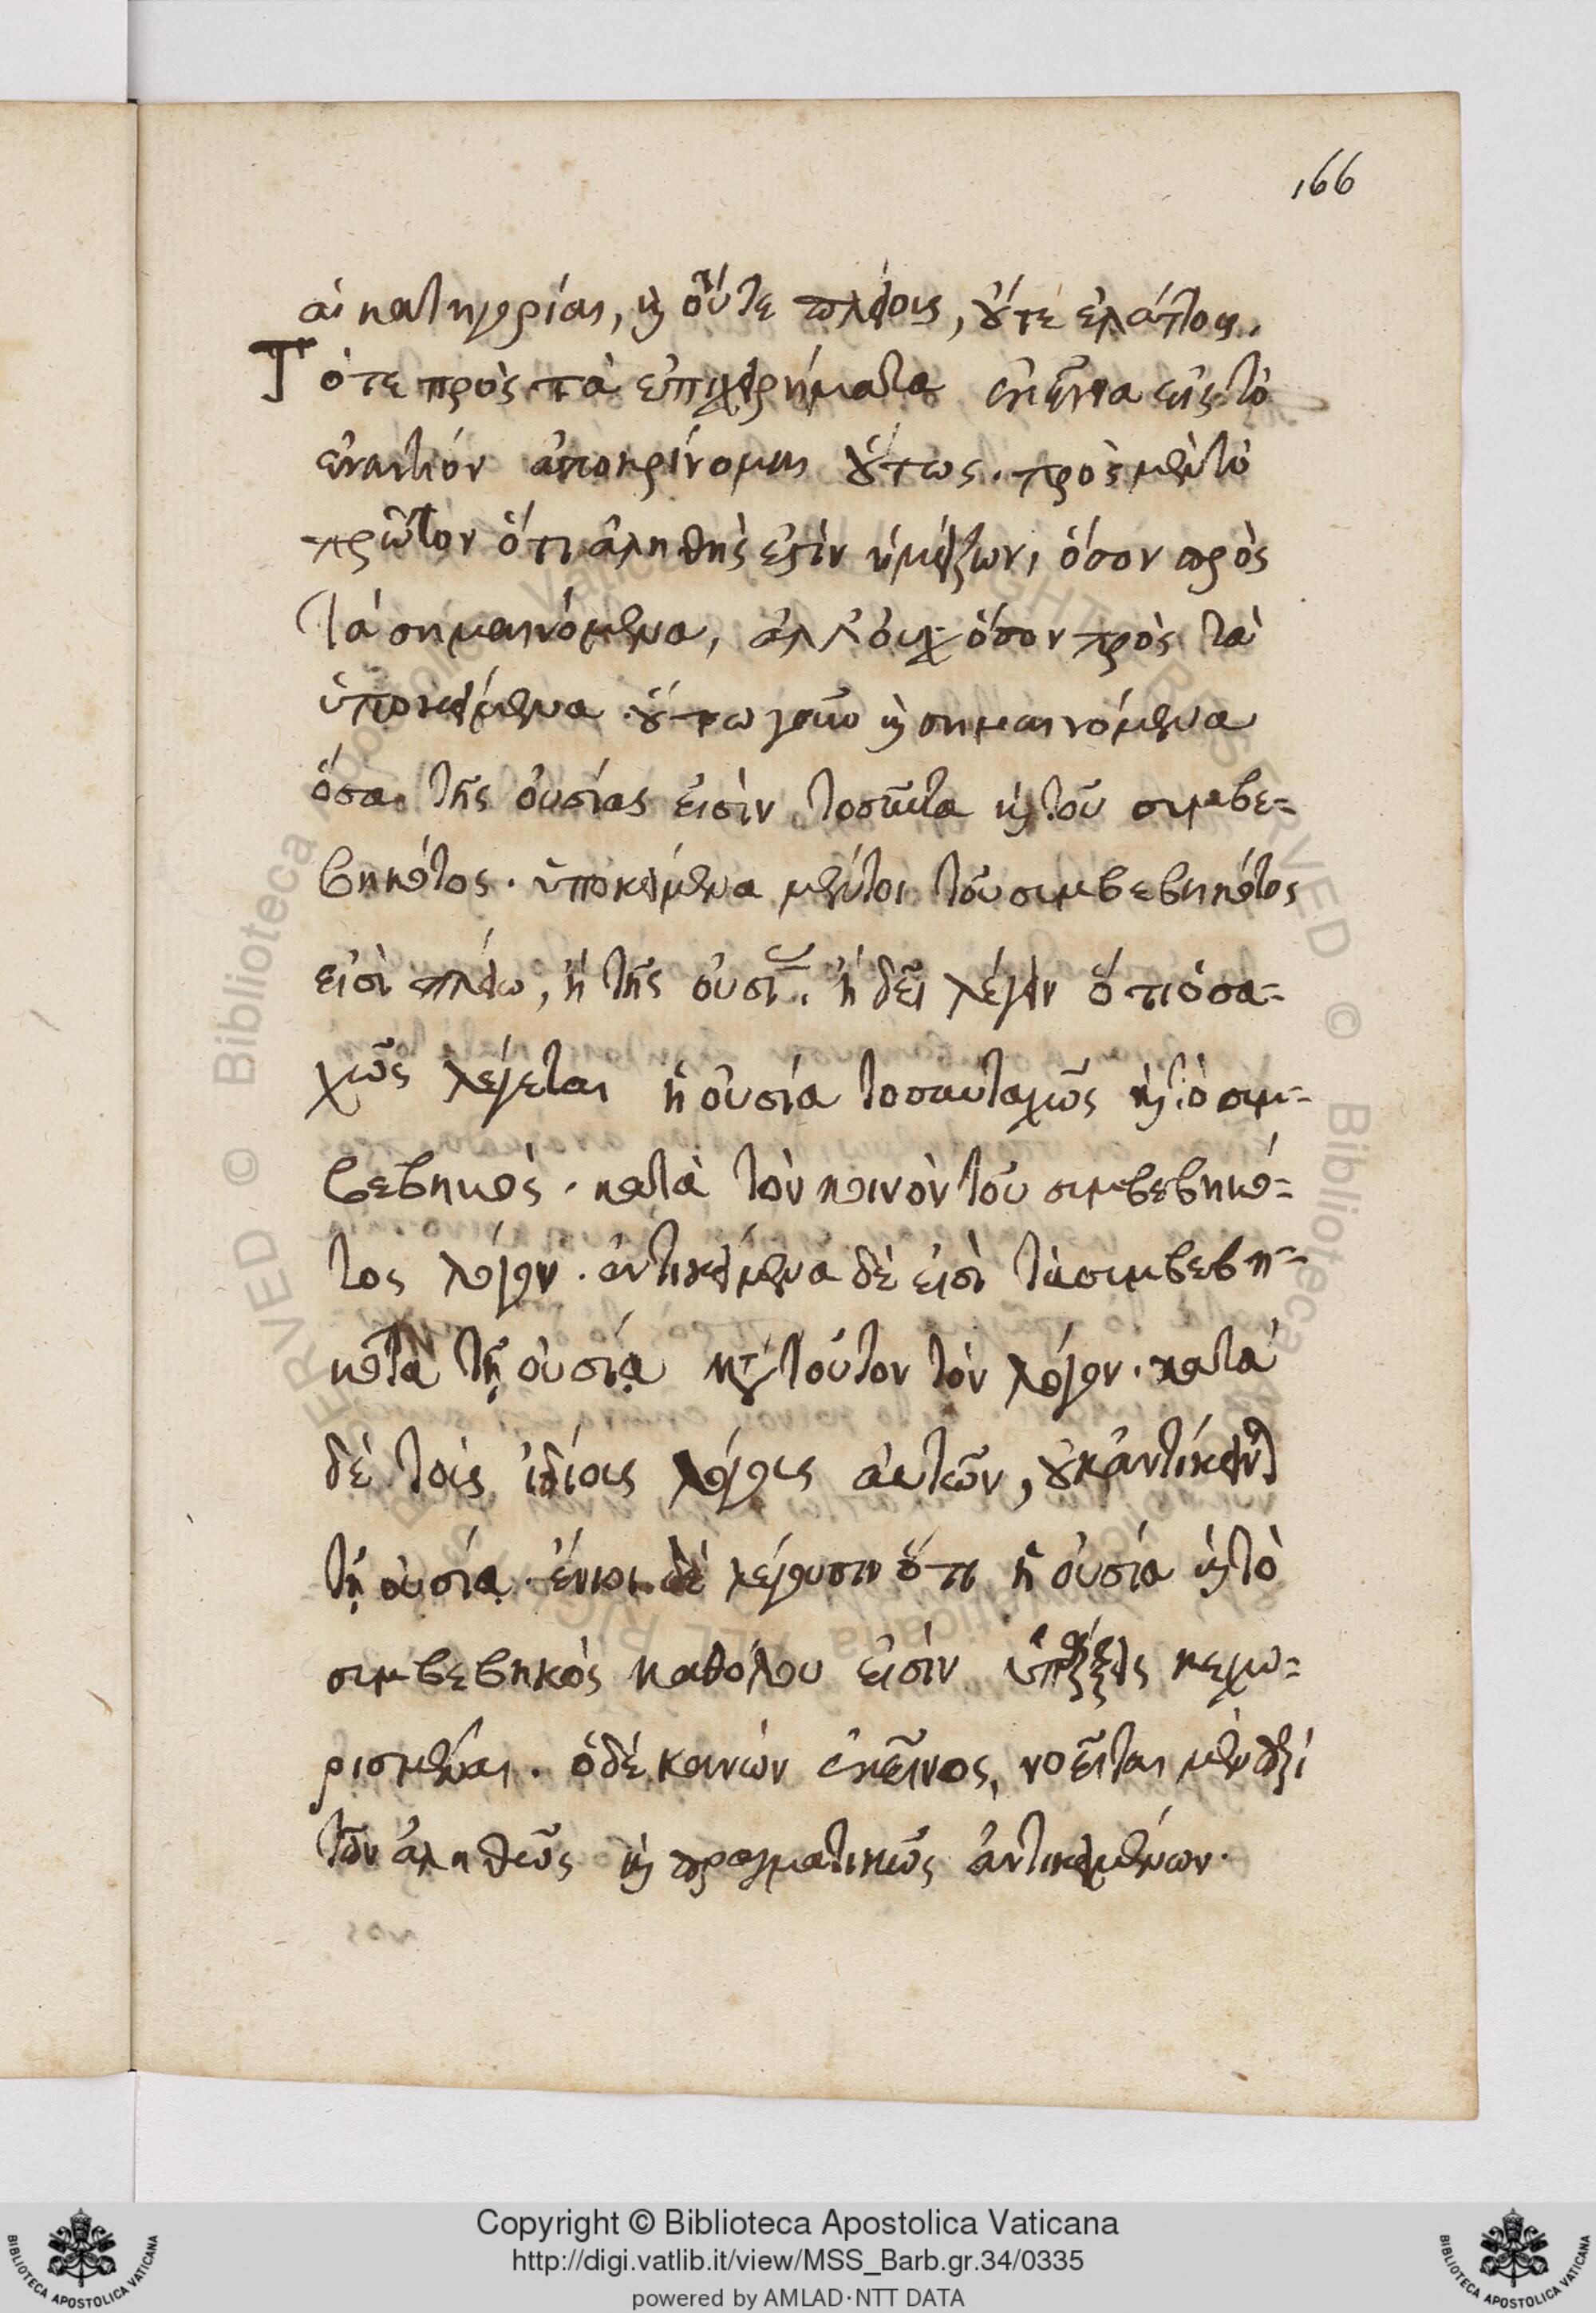 166
αἱ κατηγορίαι, καὶ οὔτε πλείους, οὔτε ἐλάττους.
Τότε πρὸς τὰ ἐπιχειρήματα ἐκεῖνα εἰς τὸ
ἐναντίον ἀποκρίνομαι οὕτως. πρὸς μὲν τὸ
πρῶτον ὅτι ἀληθὴς ἐστὶν ἡ μείζων, ὅσον πρὸς
τὰ σημαινόμενα, ἀλλ' οὐχ ὅσον πρὸς τὰ
ὑποκείμενα. οὕτω γοῦν καὶ σημαινόμενα
ὅσα τῆς οὐσίας εἰσὶν τοσαῦτα καὶ τοῦ συμβε=
βηκότος. ὑποκείμενα μέντοι τοῦ συμβεβηκότος
εἰσὶ πλείω, ἢ τῆς οὐσίας. ἢ δεῖ λέγειν ὅτι ὁσα=
χῶς λέγεται ἡ οὐσία τοσαυταχῶς καὶ τὸ συμ=
βεβηκὸς. κατὰ τὸν κοινὸν τοῦ συμβεβηκό=
τος λόγον. ἀντικείμενα δὲ εἰσὶ τὰ συμβεβη=
κότα τῇ οὐσίᾳ κατὰ τοῦτον τὸν λόγον. κατὰ
δὲ τοὺς ἰδίους λόγους αὐτῶν, οὐκ ἀντίκεινται
τῇ οὐσίᾳ. ἔνιοι δὲ λέγουσιν ὅτι ἡ οὐσία καὶ τὸ
συμβεβηκὸς καθόλου εἰσὶν ὑπάρξεις κεχω=
ρισμέναι. ὁ δὲ κανὼν ἐκεῖνος, νοεῖται μὲν περὶ
τῶν ἀληθῶς καὶ πραγματικῶς ἀντικειμένων.
Copyright © Biblioteca Apostolica Vaticana
http://digi.vatlib.it/view/MSS_Barb.gr.34/0335
powered by AMLAD·NTT DATA